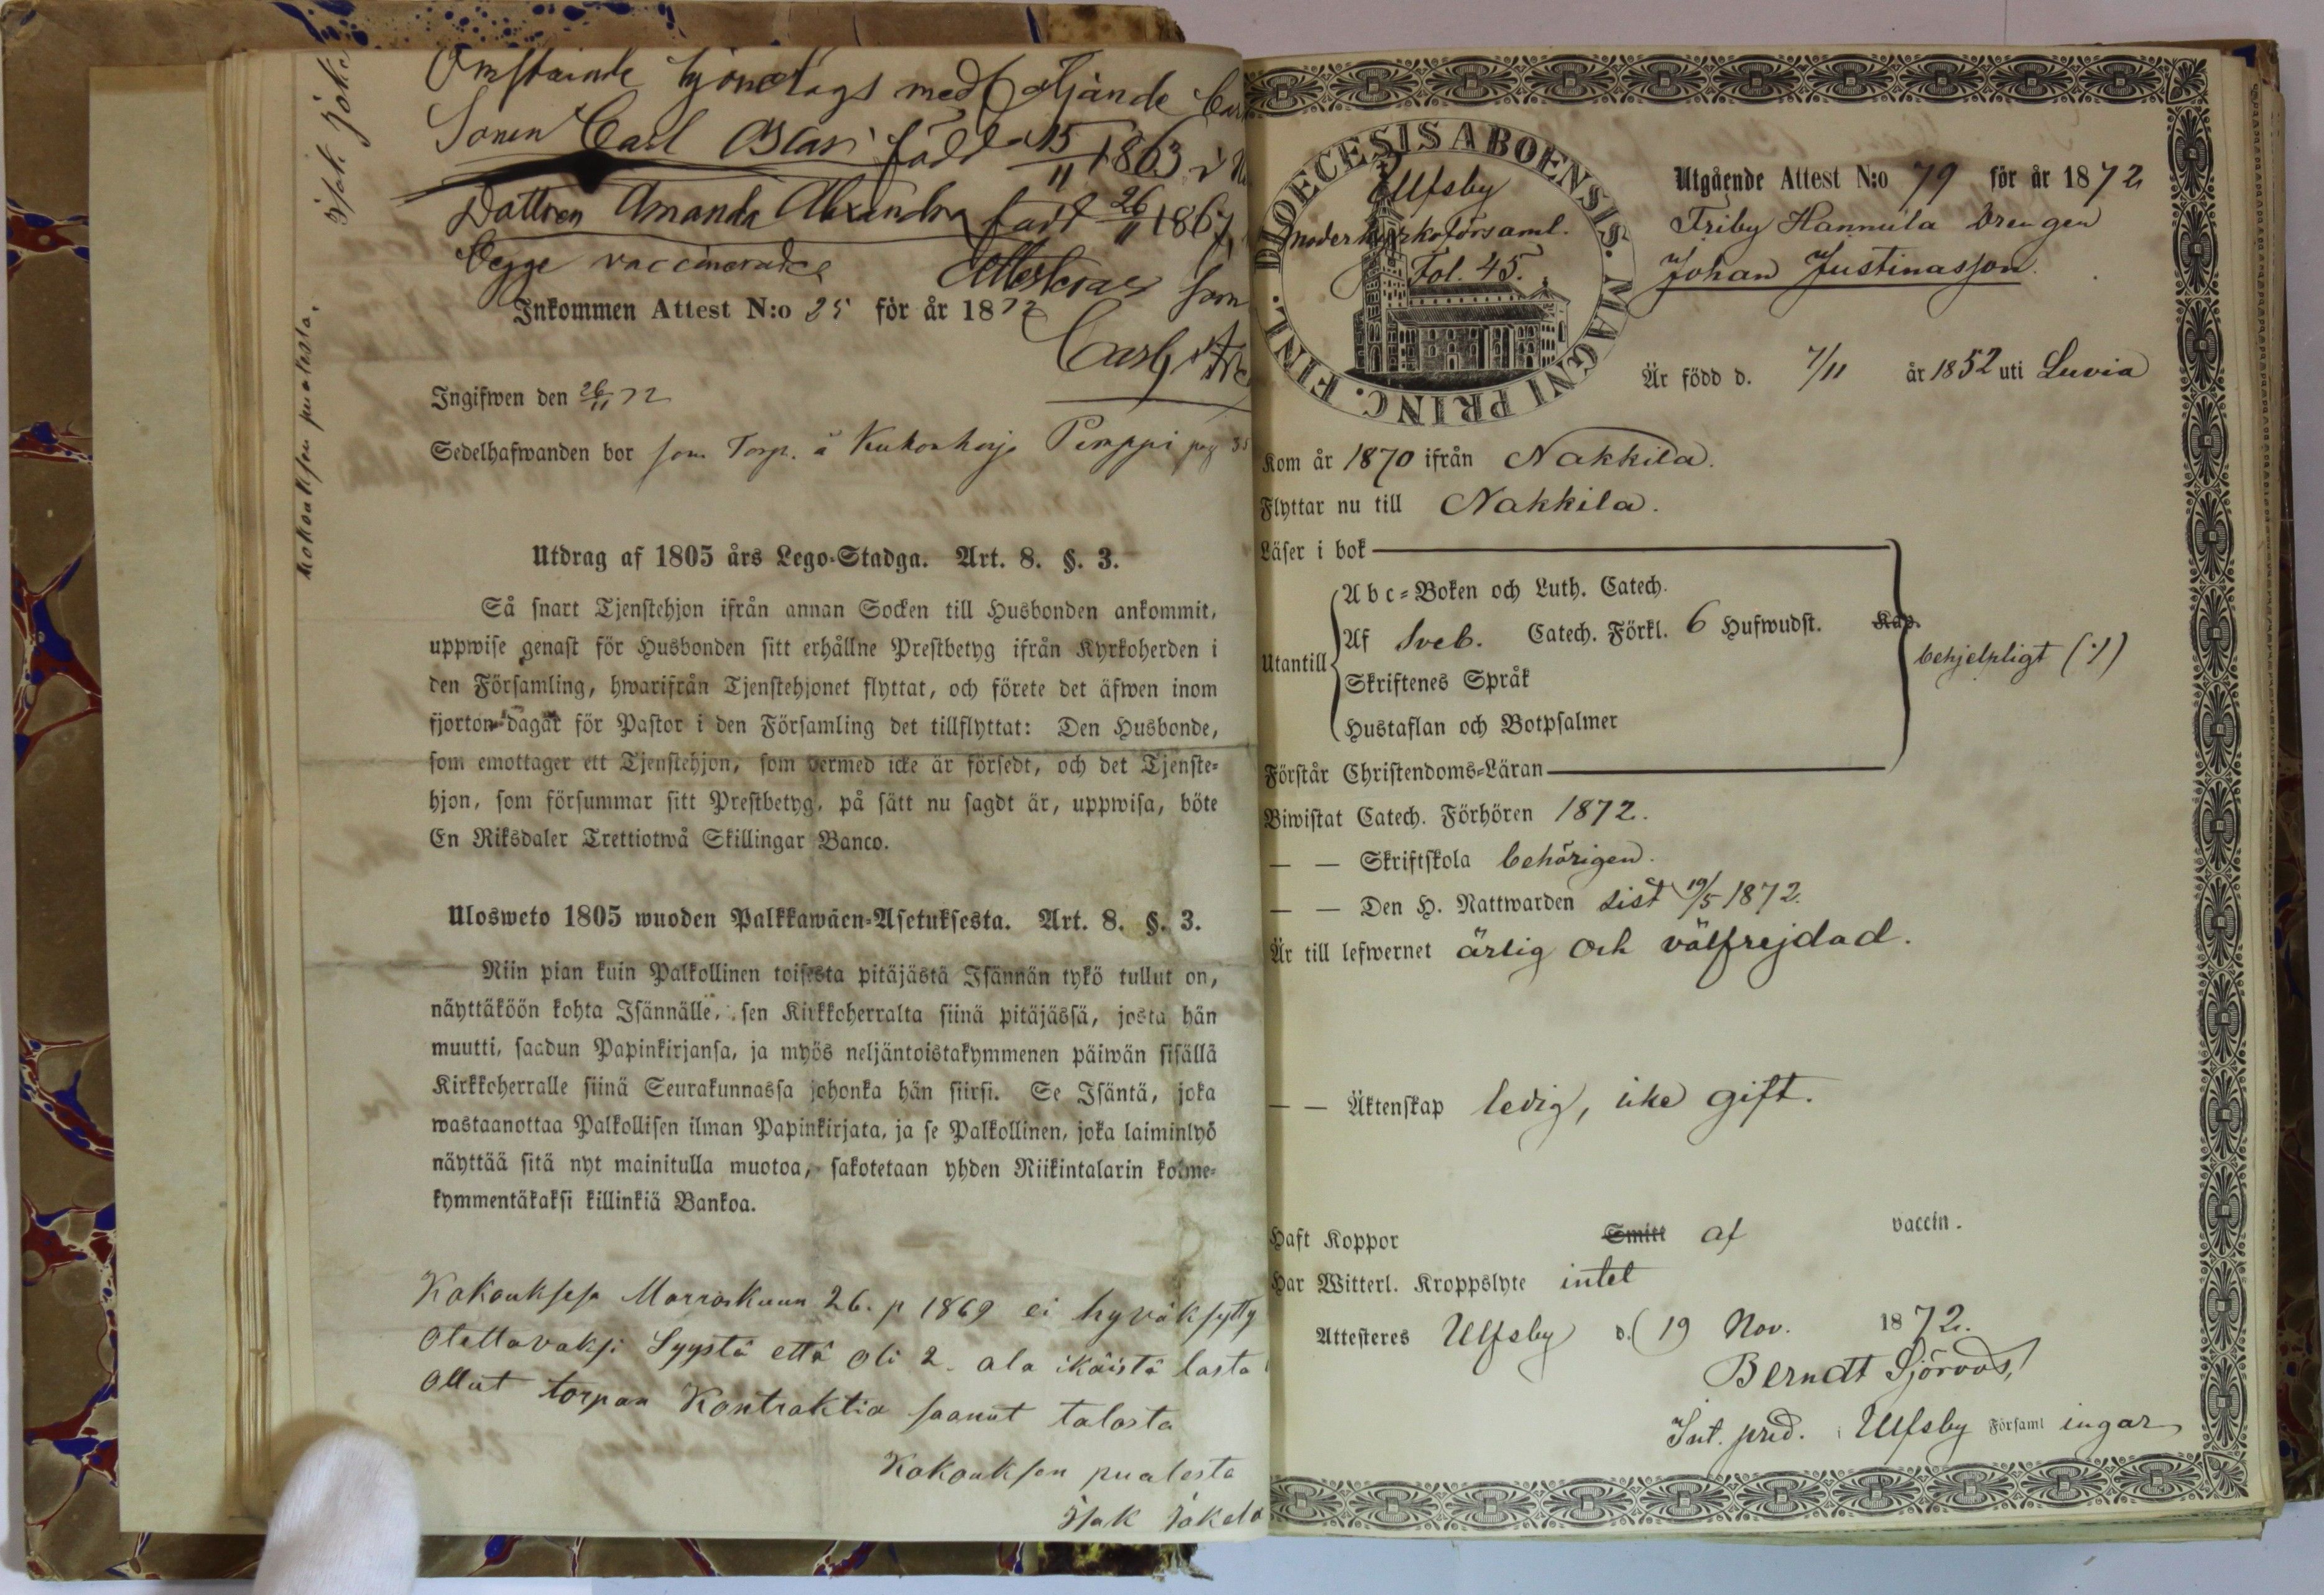 Omstående hjonelags medföljande barn
Sonen Carl Oscar född 15/11 1863 i
Dottren Amanda Alexandra född 26/11 1867,
begge vaccinerade Attesteras som
Inkommen Attest N:o 25 för år 1872
Ingifwen den 26/11 72
Sedelhafwanden bor som Torp. å Kukonharja Pimppi pag 35
Utdrag af 1805 års Lego-Stadga. Art. 8. §. 3.
Så snart Tjenstehjon ifrån annan Socken till Husbonden ankommit,
uppwise genast för Husbonden sitt erhållne Prestbetyg ifrån Kyrkoherden i
den Församling, hwarifrån Tjenstehjonet flyttat, och förete det äfwen inom
fjorton dagar för Pastor i den Församling det tillflyttat: Den Husbonde,
som emottager ett Tjenstehjon, som dermed icke är försedt, och det Tjenste-
hjon, som försummar sitt Prestbetyg, på sätt nu sagdt är, uppwisa, böte
En Riksdaler Trettiotwå Skillingar Banco.
Ulosweto 1805 wuoden Palkkawäen-Asetuksesta. Art. 8. §. 3.
Niin pian kuin Palkollinen toisesta pitäjästä Isännän tykö tullut on,
näyttäköön kohta Isännälle, sen Kirkkoherralta siinä pitäjässä, josta hän
muutti, saadun Papinkirjansa, ja myös neljäntoistakymmenen päiwän sisällä
Kirkkoherralle siinä Seurakunnassa johonka hän siirsi. Se Isäntä, joka
wastaanottaa Palkollisen ilman Papinkirjata, ja se Palkollinen, joka laiminlyö
näyttää sitä nyt mainitulla muotoa, sakotetaan yhden Riikintalarin kolme-
kymmentäkaksi killinkiä Bankoa.
Kokouksesa Marraskuun 26. p 1869 ei hyväksytty
Otettavaksi Syystä että oli 2. ala ikäistä lasta
Ollut torpan Kontraktia saanut talosta
Kokouksen puolesta
Isak Jokela
Isak Joke
Kokouksen puolesta.
DIOECESIS ABOENSIS. MAGNI PRINC. FINL.
Ulfsby
moderkyrkoförsaml.
Fol. 45.
Utgående Attest N:o 79 för år 1872
Friby Hannula Drengen
Johan Justinasson.
Är född d. 7/11 år 1852 uti Luvia
Kom år 1870 ifrån Nakkila.
Flyttar nu till Nakkila.
Läser i bok
Utantill
Abc-Boken och Luth. Catech.
Af Sveb. Catech. Förkl. 6 Hufwudst. Kap.
Skriftenes Språk
Hustaflan och Botpsalmer
behjelpligt (:/)
Förstår Christendoms-Läran
Biwistat Catech. Förhören 1872.
— — Skriftskola behörigen.
— — Den H. Nattwarden sist 19/5 1872.
Är till lefwernet ärlig och välfrejdad.
— — Äktenskap ledig, icke gift.
Haft Koppor Smitt af vaccin.
Har Witterl. Kroppslyte intet
Attesteres Ulfsby d. 19 Nov. 1872.
Berndt Sjöroos,
Int. pred. i Ulfsby Församl ingar